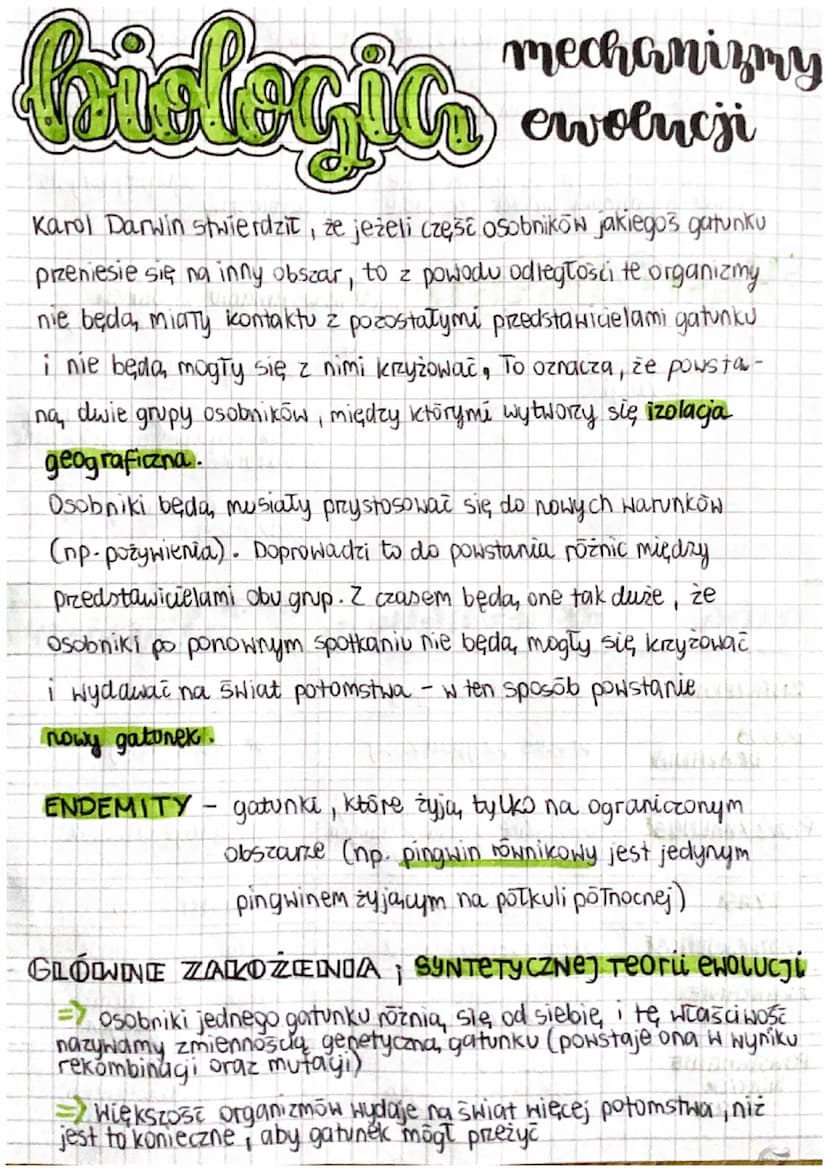 biologia
mechanizmy
ewolucji
Karol Darwin stwierdził, że jeżeli część osobników jakiegoś gatunku
przeniesie się na inny obszar, to z powodu odległości te organizmy
nie będą miały kontaktu z pozostałymi przedstawicielami gatunku
i nie będą mogły się z nimi krzyżować, To oznacza, że powsta-
ną dwie grupy osobników, między którymi wytworzy się izolacja
geograficzna.
Osobniki będą musiały przystosować się do nowych warunków
(np. pożywienia). Doprowadzi to do powstania różnic między
przedstawicielami obu grup. Z czasem będą one tak duże, że
osobniki po ponownym spotkaniu nie będą mogły się krzyżować
i wydawać na świat potomstwa - w ten sposób powstanie
nowy gatunek.
ENDEMITY - gatunki, które żyją tylko na ograniczonym
obszarze (np. pingwin równikowy jest jedynym
pingwinem żyjącym na półkuli północnej)
GŁÓWNE ZAŁOŻENIA ; SYNTETYCZNEJ TEORII EWOLUCJI
=> osobniki jednego gatunku różnią się od siebie i tę właściwość
nazywamy zmiennością genetyczną gatunku (powstaje ona w wyniku
rekombinacji oraz mutacji)
=> większość organizmów wydaje na świat więcej potomstwa, niż
jest to konieczne, aby gatunek mógł przeżyć